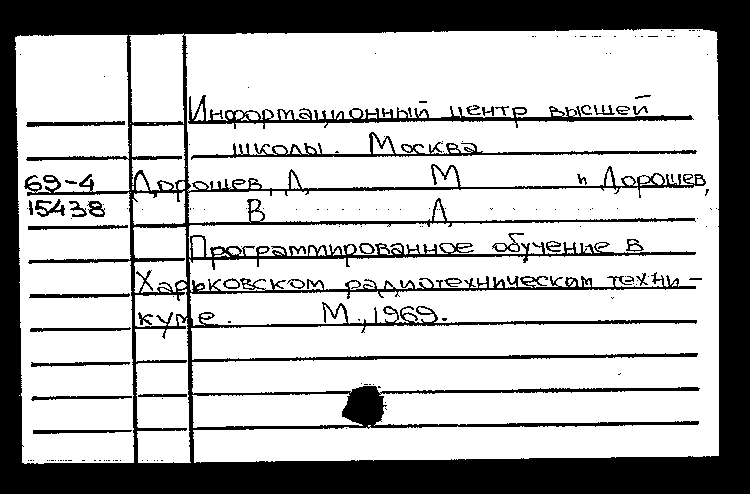 Информационный центр высшей
школы. Москва
69-4 Дорошев, Л. М и Дорошев,
15438 В Л
Программированное обучение в
Харьковском радиотехническом техни-
куме. М., 1969.